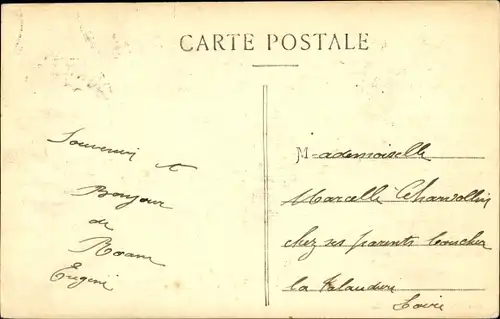 CARTE POSTALE
Souvenir et
Bonjour
de
Roanne
Eugénie
Mademoiselle
Marcelle
chez ses parents boucher
la Talaudière
Loire